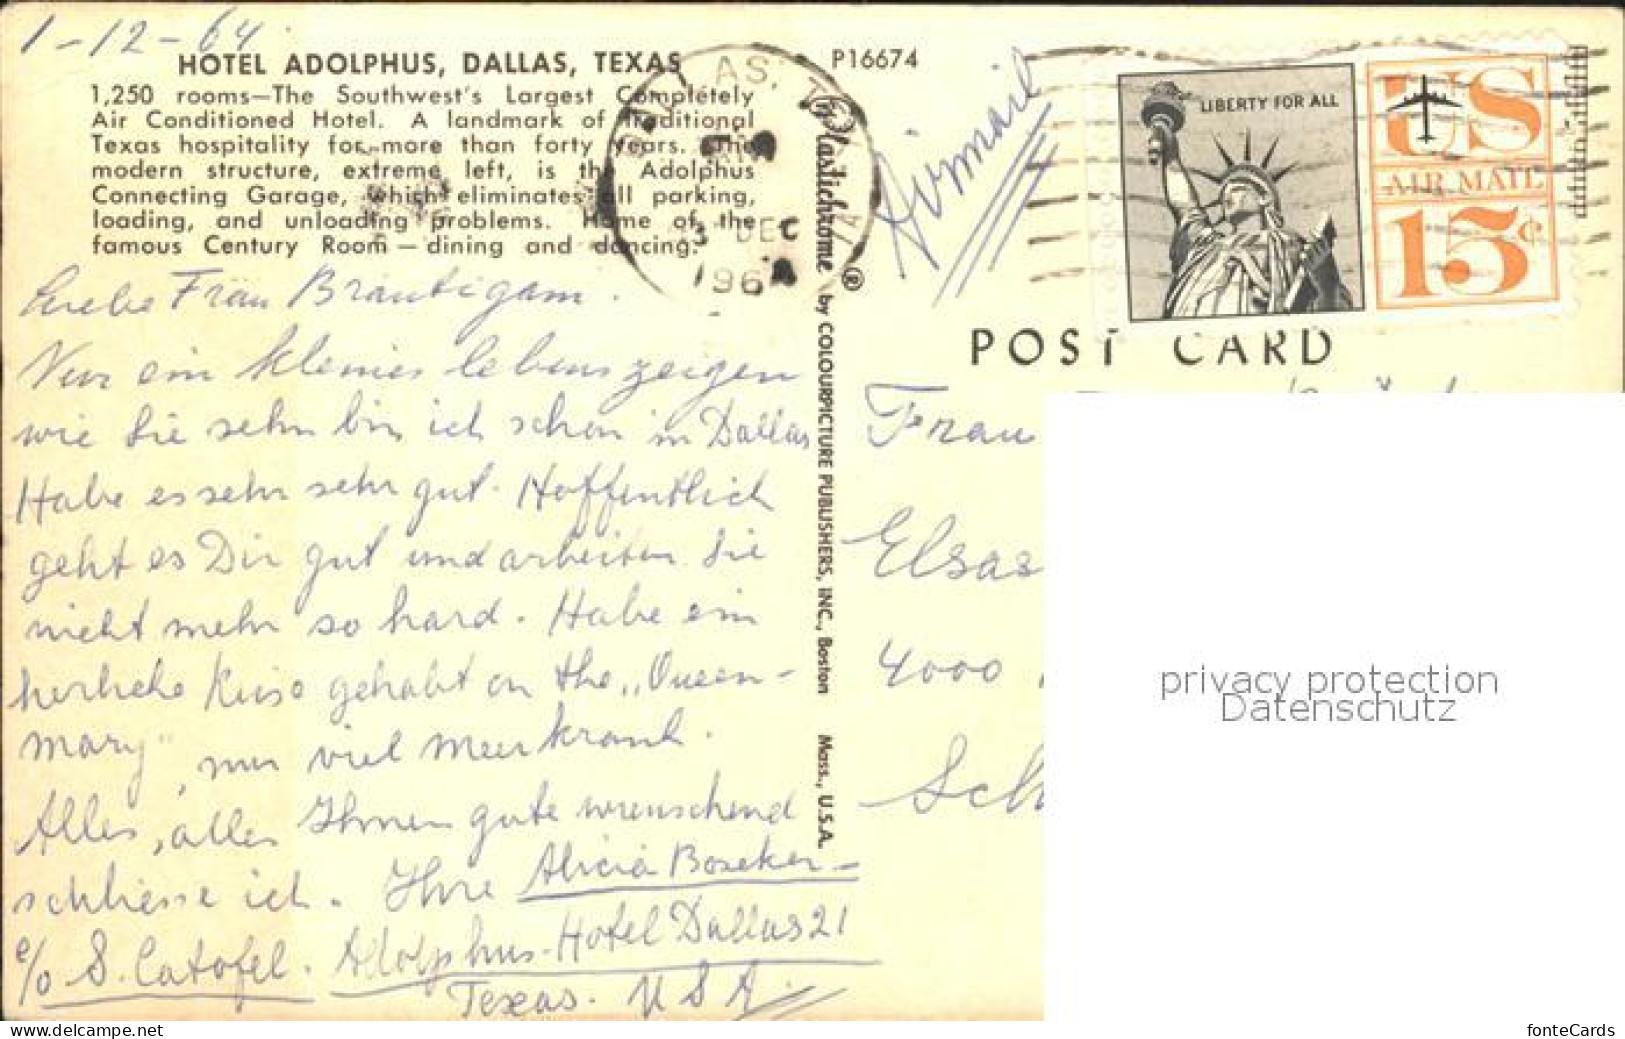 1-12-64
HOTEL ADOLPHUS, DALLAS, TEXAS
1,250 rooms—The Southwest's Largest Completely
Air Conditioned Hotel. A landmark of traditional
Texas hospitality for more than forty years. The
modern structure, extreme left, is the Adolphus
Connecting Garage, which eliminates all parking,
loading, and unloading problems. Home of the
famous Century Room — dining and dancing.
Liebe Frau Brautigam.
Nur ein kleines lebenszeigen
wie Sie sehn bin ich schon in Dallas
Habe es sehr sehr gut. Hoffentlich
geht es Dir gut und arbeiten Sie
nicht mehr so hard. Habe ein
herliche Reise gehabt on the „Queen-
Mary", nur viel Meerkrank.
Alles, alles Ihnen gute wuenschend
schliesse ich. Ihre Alicia
c/o S. Catofel. Adolphus-Hotel Dallas 21
Texas. USA
Plastichrome ® by COLOURPICTURE PUBLISHERS, INC., Boston Mass., U.S.A.
P16674
AS, T
DEC
196
Airmail
LIBERTY FOR ALL
US
AIR MAIL
15c
POST CARD
Frau
Elsas
4000
Sch
privacy protection
Datenschutz
www.delcampe.net
fonteCards